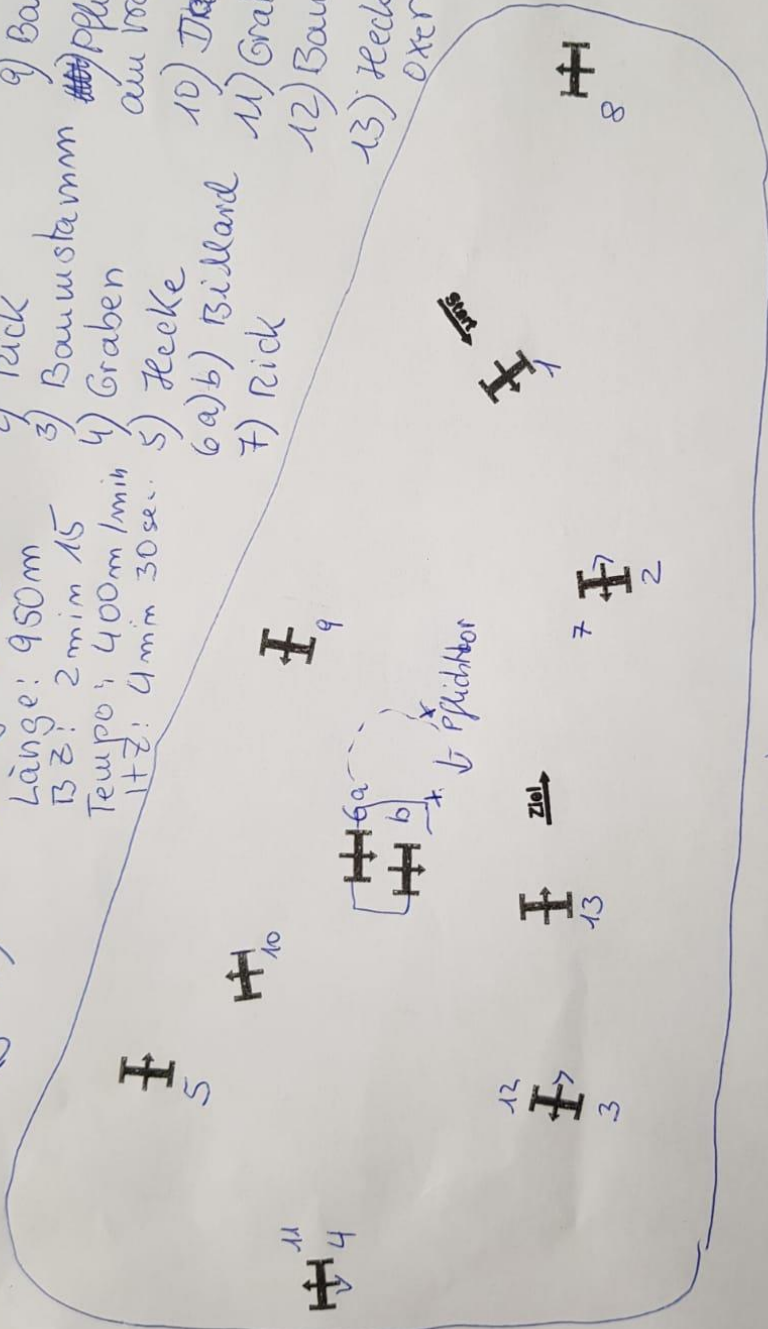 Länge: 950m
BZ: 2min 15
Tempo: 400m/min
HZ: 4min 30sec.
Rick
3) Baumstamm
4) Graben
5) Hecke
6a)b) Billard
7) Rick
9) Ba
10)
11) Gra
12) Bau
13) Heck
Oxer
5
10
9
11
4
6a
b
Pflichttor
Start
1
12
3
13
Ziel
7
2
8